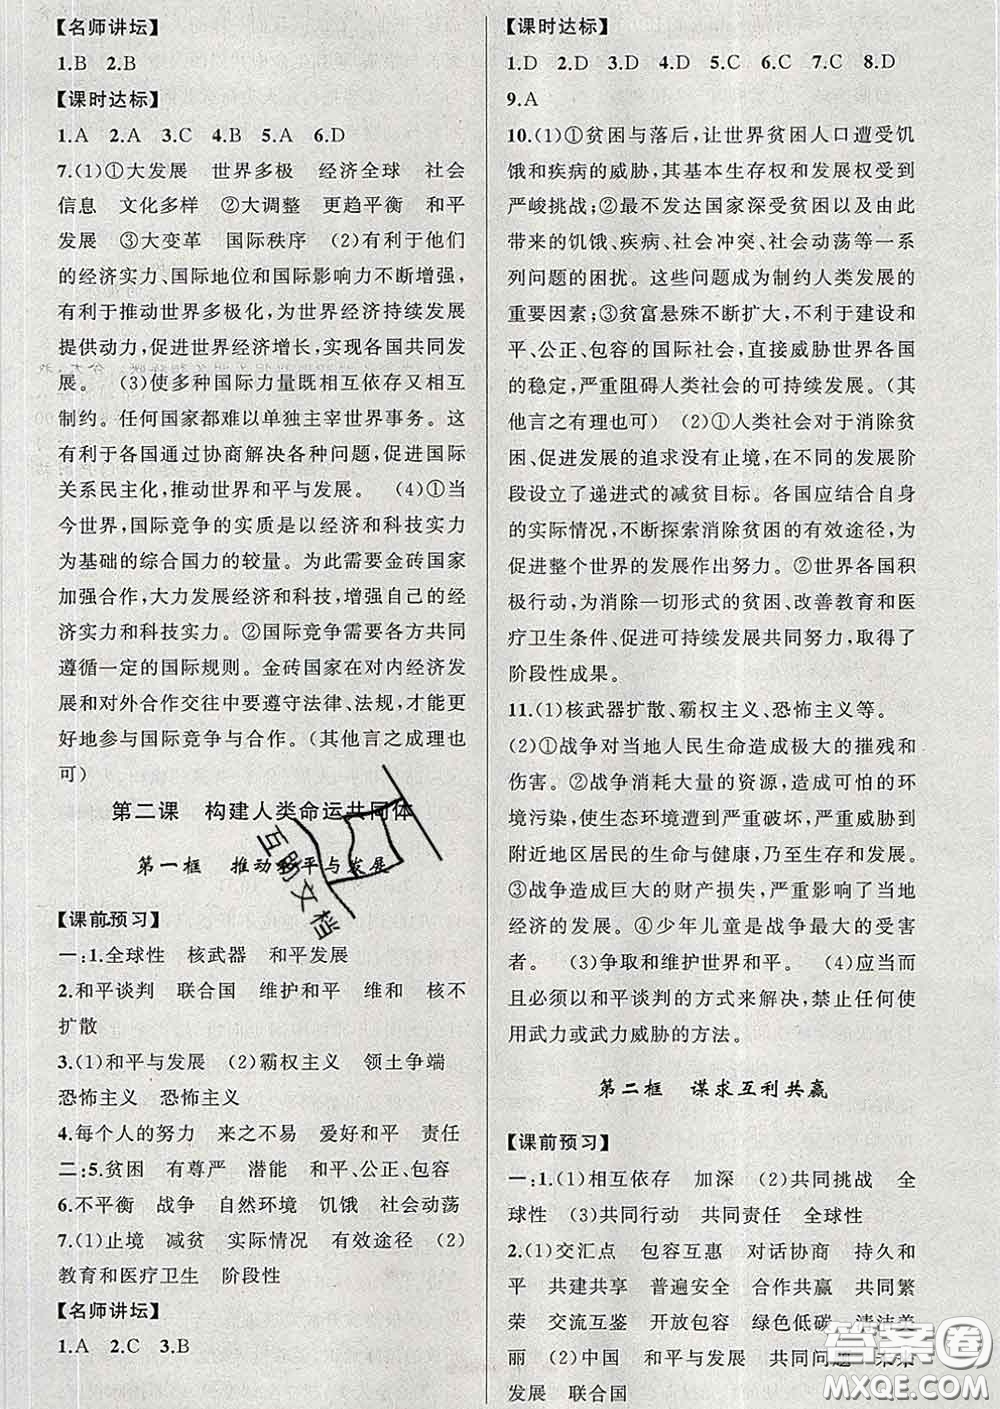 【名师讲坛】
1.B 2.B
【课时达标】
1.A 2.A 3.C 4.B 5.A 6.D
7.(1)①大发展 世界多极 经济全球 社会
信息 文化多样 ②大调整 更趋平衡 和平
发展 ③大变革 国际秩序 (2)有利于他们
的经济实力、国际地位和国际影响力不断增强,
有利于推动世界多极化,为世界经济持续发展
提供动力,促进世界经济增长,实现各国共同发
展。 (3)使多种国际力量既相互依存又相互
制约。任何国家都难以单独主宰世界事务。这
有利于各国通过协商解决各种问题,促进国际
关系民主化,推动世界和平与发展。 (4)①当
今世界,国际竞争的实质是以经济和科技实力
为基础的综合国力的较量。为此需要金砖国家
加强合作,大力发展经济和科技,增强自己的经
济实力和科技实力。②国际竞争需要各方共同
遵循一定的国际规则。金砖国家在对内经济发
展和对外合作交往中要遵守法律、法规,才能更
好地参与国际竞争与合作。(其他言之成理也
可)
第二课 构建人类命运共同体
第一框 推动和平与发展
【课前预习】
一:1.全球性 核武器 和平发展
2.和平谈判 联合国 维护和平 维和 核不
扩散
3.(1)和平与发展 (2)霸权主义 领土争端
恐怖主义 恐怖主义
4.每个人的努力 来之不易 爱好和平 责任
二:5.贫困 有尊严 潜能 和平、公正、包容
6.不平衡 战争 自然环境 饥饿 社会动荡
7.(1)止境 减贫 实际情况 有效途径 (2)
教育和医疗卫生 阶段性
【名师讲坛】
1.A 2.C 3.B
【课时达标】
1.D 2.D 3.D 4.D 5.C 6.C 7.C 8.D
9.A
10.(1)①贫困与落后,让世界贫困人口遭受饥
饿和疾病的威胁,其基本生存权和发展权受到
严峻挑战;②最不发达国家深受贫困以及由此
带来的饥饿、疾病、社会冲突、社会动荡等一系
列问题的困扰。这些问题成为制约人类发展的
重要因素;③贫富悬殊不断扩大,不利于建设和
平、公正、包容的国际社会,直接威胁世界各国
的稳定,严重阻碍人类社会的可持续发展。(其
他言之有理也可) (2)①人类社会对于消除贫
困、促进发展的追求没有止境,在不同的发展阶
段设立了递进式的减贫目标。各国应结合自身
的实际情况,不断探索消除贫困的有效途径,为
促进整个世界的发展作出努力。②世界各国积
极行动,为消除一切形式的贫困、改善教育和医
疗卫生条件、促进可持续发展共同努力,取得了
阶段性成果。
11.(1)核武器扩散、霸权主义、恐怖主义等。
(2)①战争对当地人民生命造成极大的摧残和
伤害。②战争消耗大量的资源,造成可怕的环
境污染,使生态环境遭到严重破坏,严重影响到
附近地区居民的生命与健康,乃至生存和发展。
③战争造成巨大的财产损失,严重影响了当地
经济的发展。④少年儿童是战争最大的受害
者。 (3)争取和维护世界和平。 (4)应当而
且必须以和平谈判的方式来解决,禁止任何使
用武力或武力威胁的方法。
第二框 谋求互利共赢
【课前预习】
一:1.(1)相互依存 加深 (2)共同挑战 全
球性 (3)共同行动 共同责任 全球性
2.(1)交汇点 包容互惠 对话协商 持久和
平 共建共享 普遍安全 合作共赢 共同繁
荣 交流互鉴 开放包容 绿色低碳 清洁美
丽 (2)中国 和平与发展 共同问题 未来
发展 联合国
互助文档
答案圈
MXQE.COM